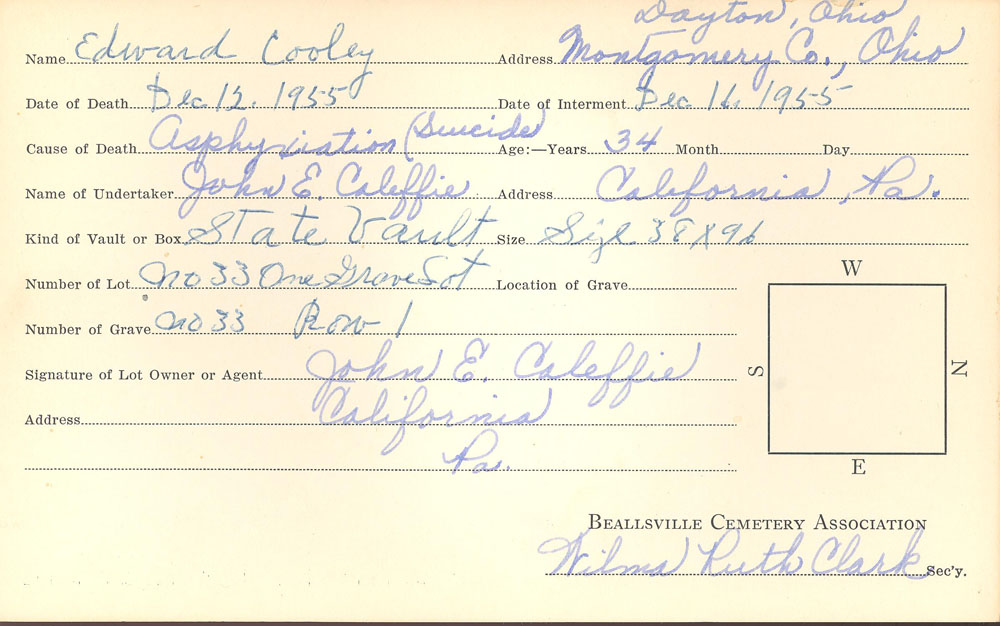 Dayton, Ohio
Name Edward Cooley Address Montgomery Co., Ohio
Date of Death Dec 12. 1955 Date of Interment Dec 16. 1955
Cause of Death Asphyxiation (Suicide) Age:—Years 34 Month Day
Name of Undertaker John E. Caleffie Address California, Pa.
Kind of Vault or Box State Vault Size Size 38 X 96
Number of Lot no 33 One Grave Lot Location of Grave
W
Number of Grave no 33 Row 1
Signature of Lot Owner or Agent John E. Caleffie
S N
Address California
Pa.
E
BEALLSVILLE CEMETERY ASSOCIATION
Wilma Ruth Clark Sec'y.